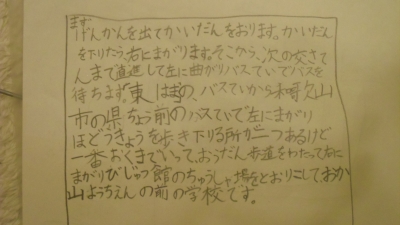 まず
げんかんを出てかいだんをおります。かいだん
を下りたら、右にまがります。そこから、次の交さて
んまで直進して左に曲がりバスていでバスを
待ちます。東
バスていから
山
市の県ちょう前のバスていで左にまがり
ほどうきょうを歩き下りる所が二つあるけど
一番おくまでいって、おうだん歩道をわたって右に
まがりびじゅつ館のちゅうしゃ場をとおりこして、おか
山ようちえんの前の学校です。